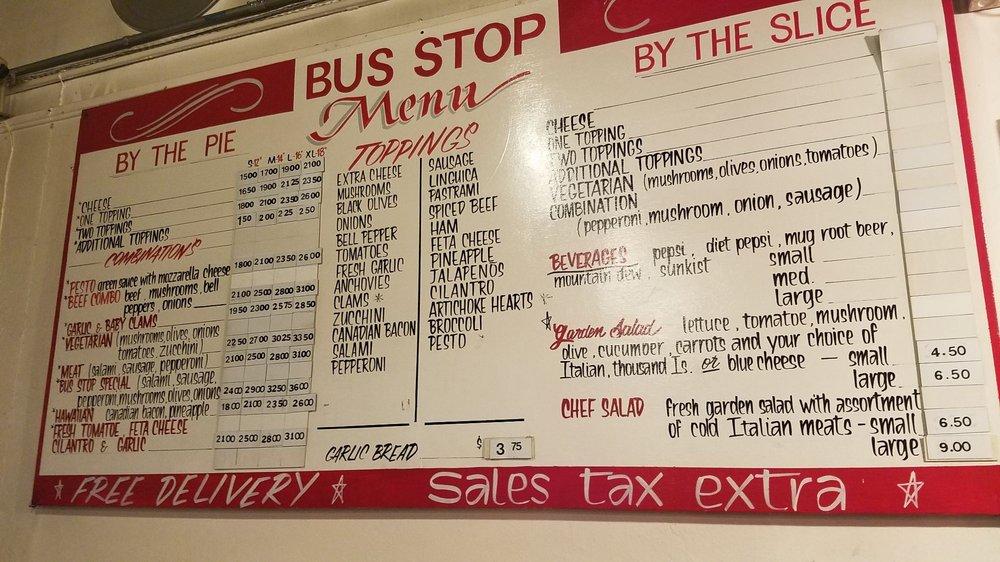 BUS STOP
Menu
BY THE PIE
S-12" M-14" L-16" XL-18"
1500 1700 1900 2100
1650 1900 2125 2350
1800 2100 2350 2600
150 200 225 250
*CHEESE
*ONE TOPPING
*TWO TOPPINGS
*ADDITIONAL TOPPINGS
COMBINATIONS
1800 2100 2350 2600
*PESTO green sauce with mozzarella cheese
*BEEF COMBO beef, mushrooms, bell
peppers, onions
2100 2500 2800 3100
1950 2300 2575 2850
*GARLIC & BABY CLAMS
*VEGETARIAN (mushrooms, olives, onions
tomatoes, zucchini)
2250 2700 3025 3350
*MEAT (salami, sausage, pepperoni)
2100 2500 2800 3100
*BUS STOP SPECIAL (salami, sausage,
pepperoni, mushrooms, olives, onions
2400 2900 3250 3600
*HAWAIIAN canadian bacon, pineapple
1800 2100 2350 2600
*FRESH TOMATOE, FETA CHEESE
CILANTRO & GARLIC
2100 2500 2800 3100
TOPPINGS
EXTRA CHEESE
MUSHROOMS
BLACK OLIVES
ONIONS
BELL PEPPER
TOMATOES
FRESH GARLIC
ANCHOVIES
CLAMS *
ZUCCHINI
CANADIAN BACON
SALAMI
PEPPERONI
SAUSAGE
LINGUICA
PASTRAMI
SPICED BEEF
HAM
FETA CHEESE
PINEAPPLE
JALAPENOS
CILANTRO
ARTICHOKE HEARTS
BROCCOLI
PESTO
GARLIC BREAD $ 3 75
BY THE SLICE
CHEESE
ONE TOPPING
TWO TOPPINGS
ADDITIONAL TOPPINGS
VEGETARIAN (mushrooms, olives, onions, tomatoes)
COMBINATION
(pepperoni, mushroom, onion, sausage)
BEVERAGES pepsi, diet pepsi, mug root beer,
mountain dew, sunkist small
med.
large
Garden Salad lettuce, tomatoe, mushroom.
olive, cucumber, carrots and your choice of
Italian, thousand Is. or blue cheese — small 4.50
large 6.50
CHEF SALAD fresh garden salad with assortment
of cold Italian meats - small 6.50
large 9.00
FREE DELIVERY
sales tax extra